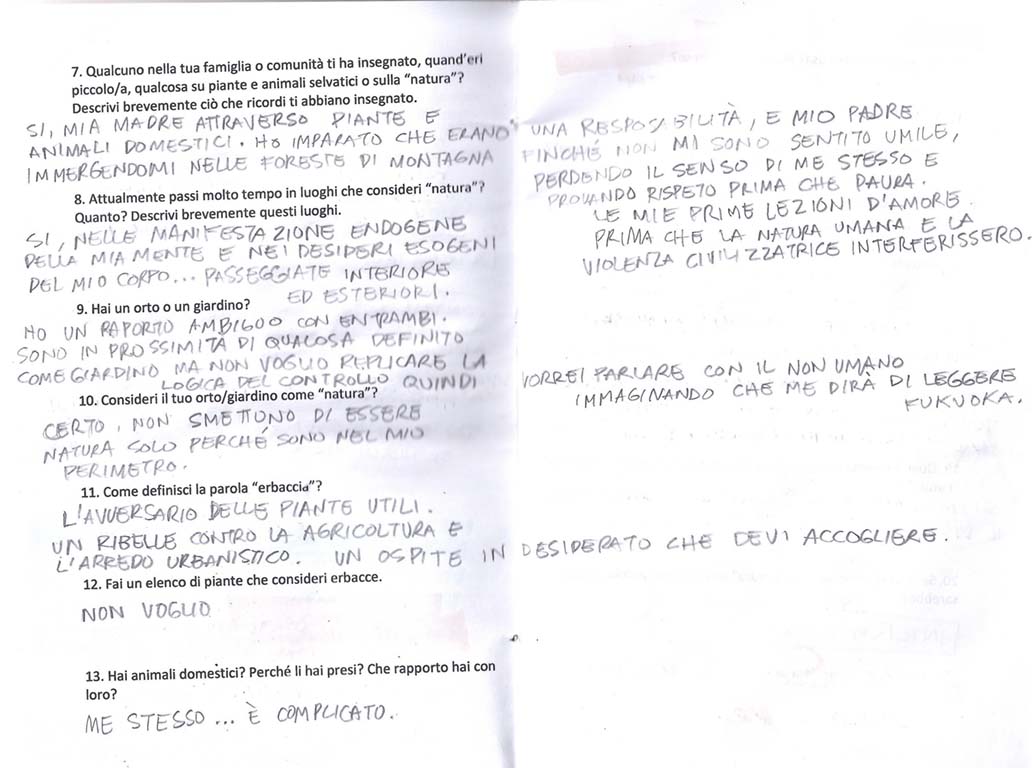 7. Qualcuno nella tua famiglia o comunità ti ha insegnato, quand'eri
piccolo/a, qualcosa su piante e animali selvatici o sulla "natura"?
Descrivi brevemente ciò che ricordi ti abbiano insegnato.
SI, MIA MADRE ATTRAVERSO PIANTE E
ANIMALI DOMESTICI. HO IMPARATO CHE ERANO UNA RESPOSABILITÀ, E MIO PADRE
IMMERGENDOMI NELLE FORESTE DI MONTAGNA FINCHÉ NON MI SONO SENTITO UMILE,
PERDENDO IL SENSO DI ME STESSO E
PROVANDO RISPETO PRIMA CHE PAURA.
LE MIE PRIME LEZIONI D'AMORE
PRIMA CHE LA NATURA UMANA E LA
VIOLENZA CIVILIZZATRICE INTERFERISSERO.
8. Attualmente passi molto tempo in luoghi che consideri "natura"?
Quanto? Descrivi brevemente questi luoghi.
SI, NELLE MANIFESTAZIONE ENDOGENE
DELLA MIA MENTE E NEI DESIDERI ESOGENI
DEL MIO CORPO... PASSEGGIATE INTERIORE
ED ESTERIORI.
9. Hai un orto o un giardino?
HO UN RAPORTO AMBIGOO CON ENTRAMBI.
SONO IN PROSSIMITÀ DI QUALCOSA DEFINITO
COME GIARDINO MA NON VOGLIO REPLICARE LA
LOGICA DEL CONTROLLO QUINDI VORREI PARLARE CON IL NON UMANO
IMMAGINANDO CHE ME DIRÀ DI LEGGERE
FUKUOKA.
10. Consideri il tuo orto/giardino come "natura"?
CERTO, NON SMETTONO DI ESSERE
NATURA SOLO PERCHÉ SONO NEL MIO
PERIMETRO.
11. Come definisci la parola "erbaccia"?
L'AVVERSARIO DELLE PIANTE UTILI.
UN RIBELLE CONTRO LA AGRICOLTURA E
L'ARREDO URBANISTICO. UN OSPITE INDESIDERATO CHE DEVI ACCOGLIERE.
12. Fai un elenco di piante che consideri erbacce.
NON VOGLIO
13. Hai animali domestici? Perché li hai presi? Che rapporto hai con
loro?
ME STESSO... È COMPLICATO.